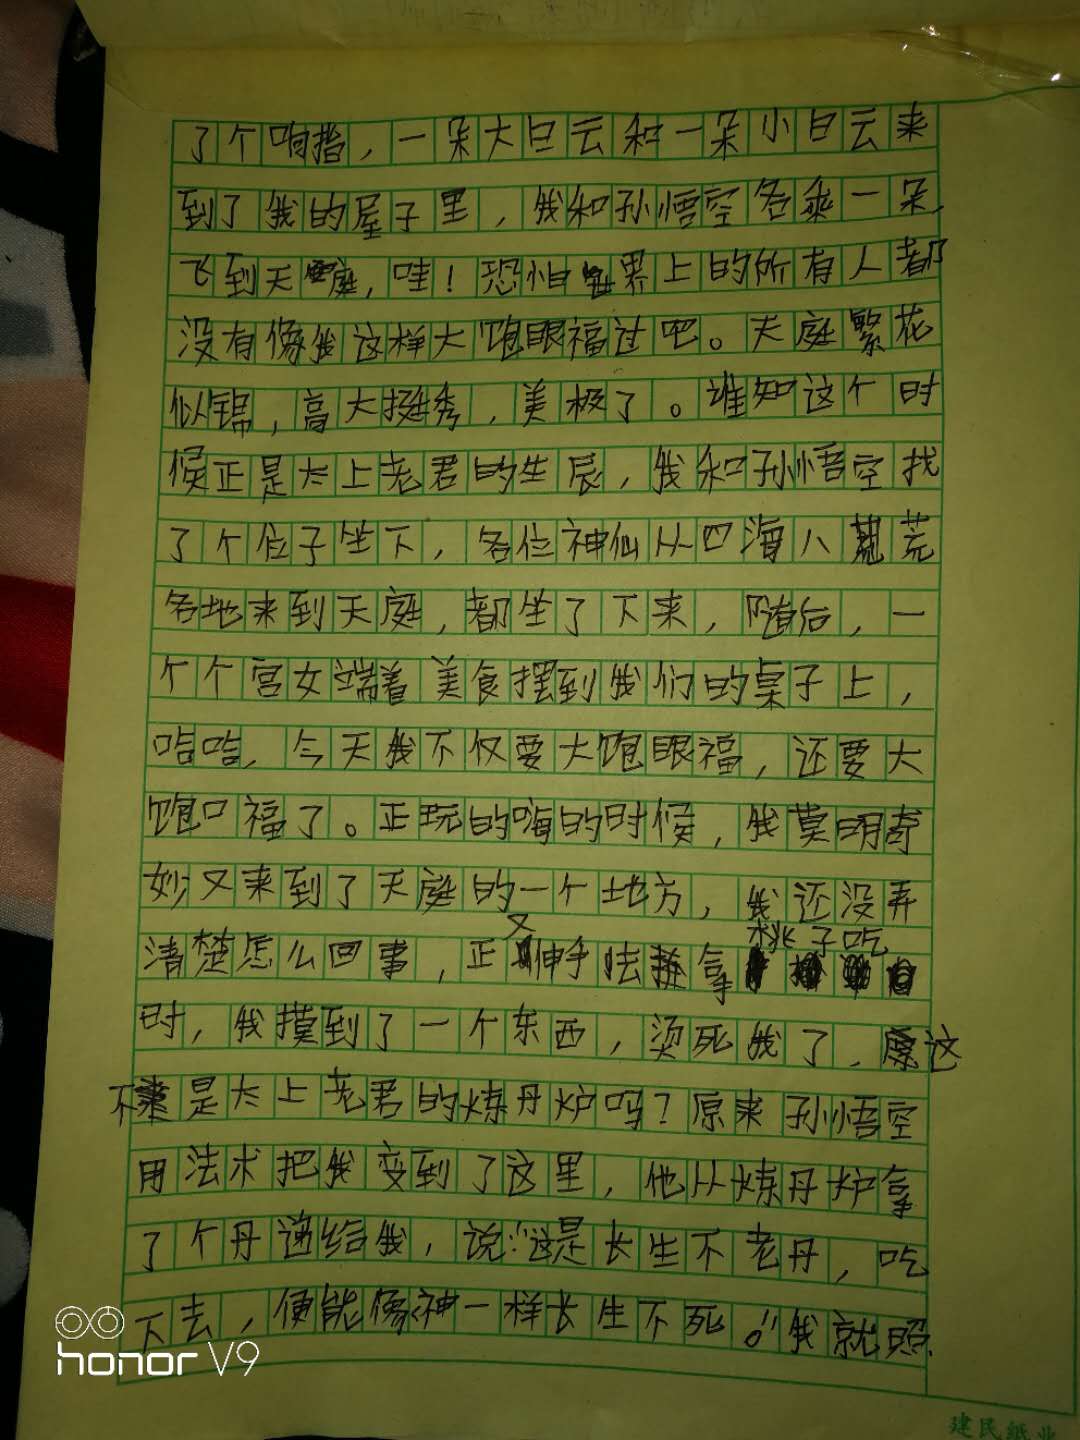 了个响指，一朵大白云和一朵小白云来
到了我的屋子里，我和孙悟空各乘一朵，
飞到天庭，哇！恐怕世界上的所有人都
没有像我这样大饱眼福过吧。天庭繁花
似锦，高大挺秀，美极了。谁知这个时
候正是太上老君的生辰，我和孙悟空找
了个位子坐下，各位神仙从四海八荒
各地来到天庭，都坐了下来，随后，一
个个宫女端着美食摆到我们的桌子上，
哈哈，今天我不仅要大饱眼福，还要大
饱口福了。正玩的嗨的时候，我莫明奇
妙又来到了天庭的一个地方，我还没弄
清楚怎么回事，正又伸手去拿桃子吃
时，我摸到了一个东西，烫死我了，这
不是太上老君的炼丹炉吗？原来孙悟空
用法术把我变到了这里，他从炼丹炉拿
了个丹递给我，说：“这是长生不老丹，吃
下去，便能像神一样长生不死。”我就照
honor V9
建民纸业